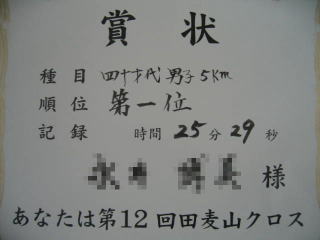 賞 状
種 目 四十才代 男子 5km
順 位 第一位
記 録 時間 25 分 29 秒
様
あなたは第12回田麦山クロス